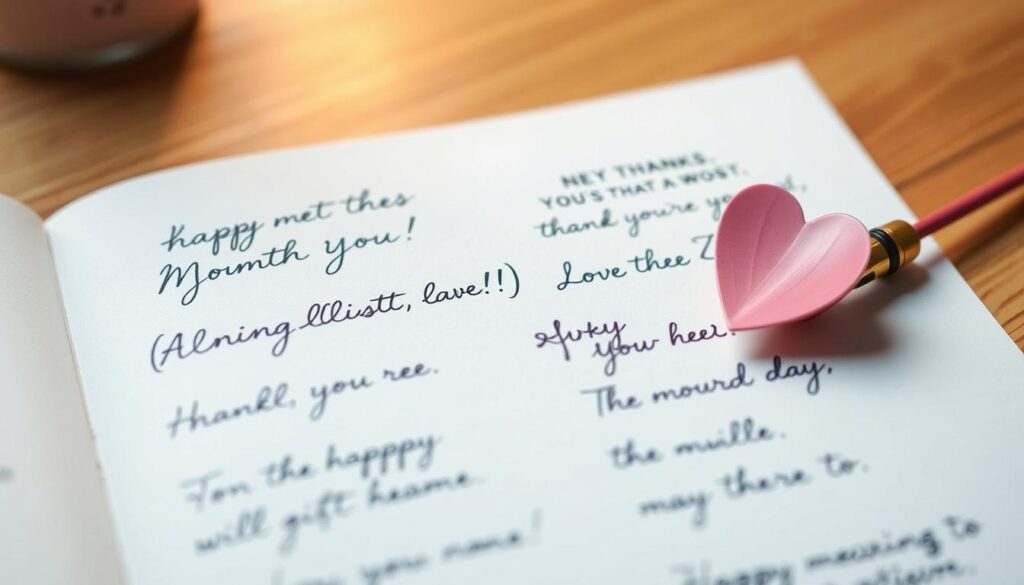 Happy met thes
Mounth you!
(Alning lllistt, lave!!)
Hankl, you ree.
Ton the happpy
will gift heame.
you name!
NEY THANKS.
YOU'S THAT A WOST.
thank you're
Love thee
you heer.
The mourd day,
the muille.
may there to.
Happy to